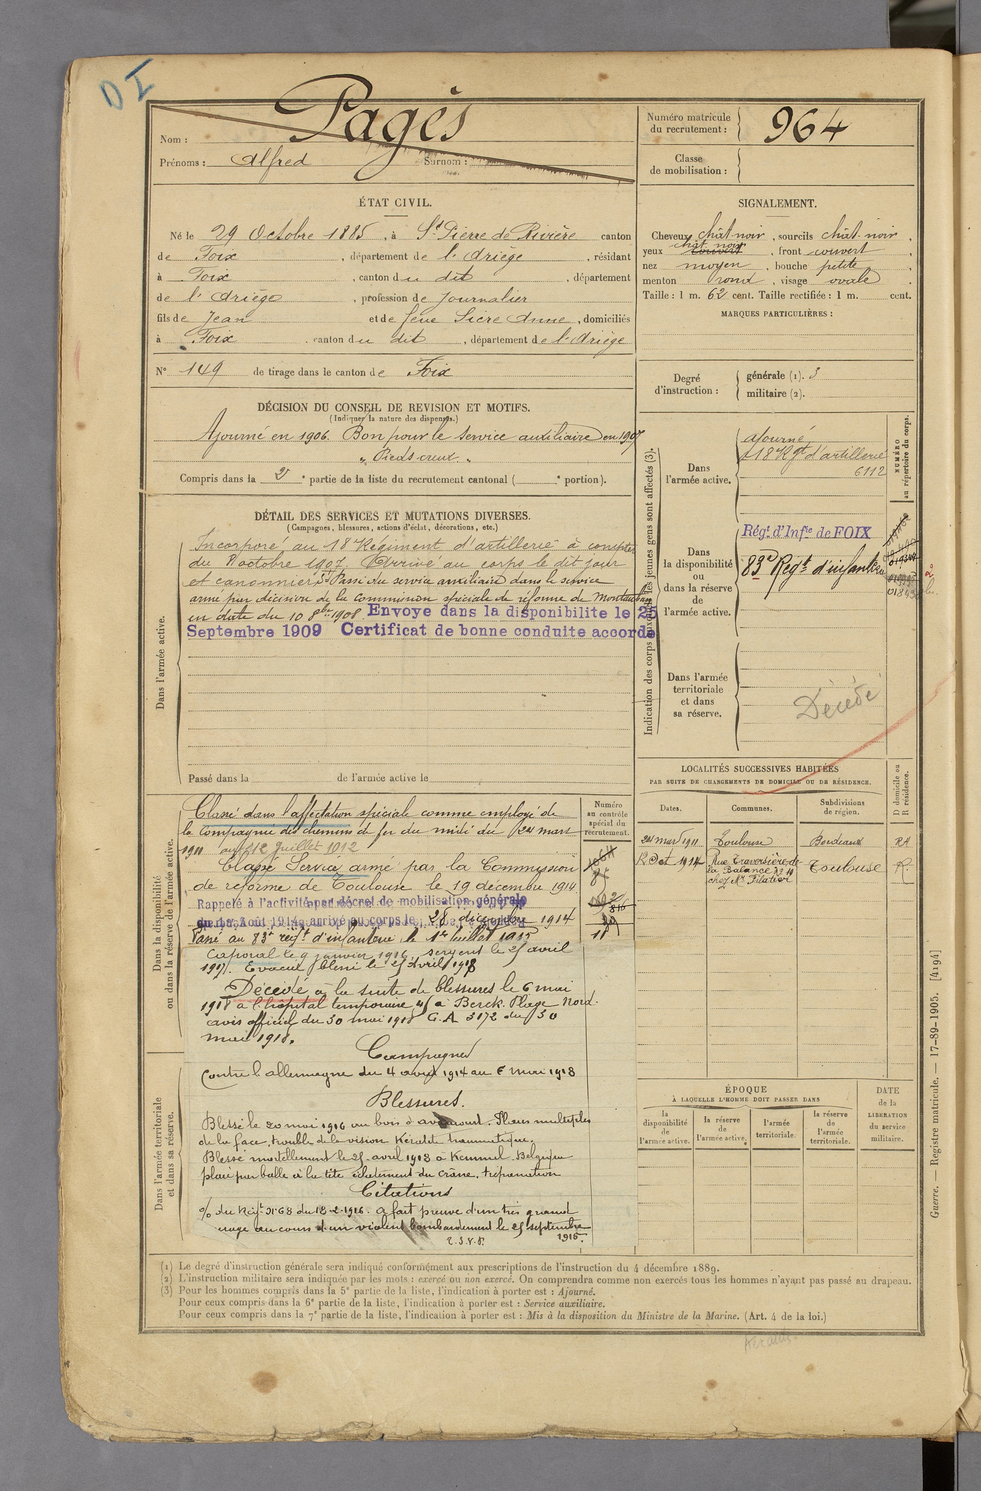 DI
Nom : Pagès
Prénoms : Alfred Surnom :
Numéro matricule du recrutement : 964
Classe de mobilisation :
ÉTAT CIVIL.
Né le 29 Octobre 1885, à St Pierre de Rivière canton
de Foix, département de l'Ariège, résidant
à Foix, canton du dit, département
de l'Ariège, profession de Journalier
fils de Jean et de feue Sicre Anne, domiciliés
à Foix, canton du dit, département de l'Ariège
N° 149 de tirage dans le canton de Foix
SIGNALEMENT.
Cheveux chât-noir, sourcils chât-noir,
chât noir
yeux couvert, front couvert,
nez moyen, bouche petite,
menton rond, visage ovale
Taille : 1 m. 62 cent. Taille rectifiée : 1 m. cent.
MARQUES PARTICULIÈRES :
Degré d'instruction : générale (1). 3
militaire (2).
DÉCISION DU CONSEIL DE REVISION ET MOTIFS.
(Indiquer la nature des dispenses.)
Ajourné en 1906. Bon pour le service auxiliaire en 1907
„ Pieds creux „
Compris dans la 2e partie de la liste du recrutement cantonal ( e portion).
DÉTAIL DES SERVICES ET MUTATIONS DIVERSES.
(Campagnes, blessures, actions d'éclat, décorations, etc.)
Dans l'armée active.
Incorporé au 18e Régiment d'artillerie à compter
du 8 octobre 1907. Arrivé au corps le dit jour
et canonnier Passé du service auxiliaire dans le service
armé par décision de la Commission spéciale de réforme de Montauban
en date du 10 8bre 1908. Envoye dans la disponibilite le 25
Septembre 1909 Certificat de bonne conduite accordé
Passé dans la de l'armée active le
Indication des corps auxquels les jeunes gens sont affectés (3).
Dans l'armée active.
Ajourné
18e Rgt d'artillerie
6112
NUMÉRO au répertoire du corps.
Dans la disponibilité ou dans la réserve de l'armée active.
Régt. d'Infie de FOIX
83e Régt d'infanterie
Dans l'armée territoriale et dans sa réserve.
Décédé
Dans la disponibilité ou dans la réserve de l'armée active.
Classé dans l'affectation spéciale comme employé de
la Compagnie des chemins de fer du midi du 24 mars
1911 au 12 Juillet 1912
Classé Service armé par la Commission
de réforme de Toulouse le 19 décembre 1914
Rappelé à l'activité par décret de mobilisation générale
du 1er Août 1914, arrivé au corps le 28 décembre 1914
Passé au 83e régt d'infanterie le 1er Juillet 1915
Caporal le 9 janvier 1916 sergent le 25 avril
1917. Evacué blessé le 25 Avril 1918
Décédé à la suite de blessures le 6 mai
1918 à l'hôpital temporaire 45 à Berck Plage Nord.
avis officiel du 30 mai 1918 C.A 3172 du 30
mai 1918.
Numéro au contrôle spécial du recrutement.
Campagnes
Contre l'allemagne du 4 août 1914 au 6 mai 1918
Dans l'armée territoriale et dans sa réserve.
Blessures.
Blessé le 20 mai 1916 au bois d'avocourt. Plaies multiples
de la face, trouble de la vision Kératite traumatique.
Blessé mortellement le 25 avril 1918 à Kemmel Belgique
plaie par balle à la tête éclatement du crâne, trépanation
Citations
% du Régt N° 68 du 18-2-1916. a fait preuve d'un très grand
courage au cours d'un violent bombardement le 25 septembre
1915.
LOCALITÉS SUCCESSIVES HABITÉES
PAR SUITE DE CHANGEMENTS DE DOMICILE OU DE RÉSIDENCE.
Dates. Communes. Subdivisions de région. D domicile ou R résidence.
24 mars 1911 Toulouse Bordeaux RA
12 Oct 1914 Rue Traversière de la Balance N° 14 chez Mr Filatier Toulouse R.
ÉPOQUE
À LAQUELLE L'HOMME DOIT PASSER DANS
la disponibilité de l'armée active.
la réserve de l'armée active.
l'armée territoriale.
la réserve de l'armée territoriale.
DATE de la LIBÉRATION du service militaire.
(1) Le degré d'instruction générale sera indiqué conformément aux prescriptions de l'instruction du 4 décembre 1889.
(2) L'instruction militaire sera indiquée par les mots : exercé ou non exercé. On comprendra comme non exercés tous les hommes n'ayant pas passé au drapeau.
(3) Pour les hommes compris dans la 5e partie de la liste, l'indication à porter est : Ajourné.
Pour ceux compris dans la 6e partie de la liste, l'indication à porter est : Service auxiliaire.
Pour ceux compris dans la 7e partie de la liste, l'indication à porter est : Mis à la disposition du Ministre de la Marine. (Art. 4 de la loi.)
Guerre. — Registre matricule. — 17-89-1905. [4194]